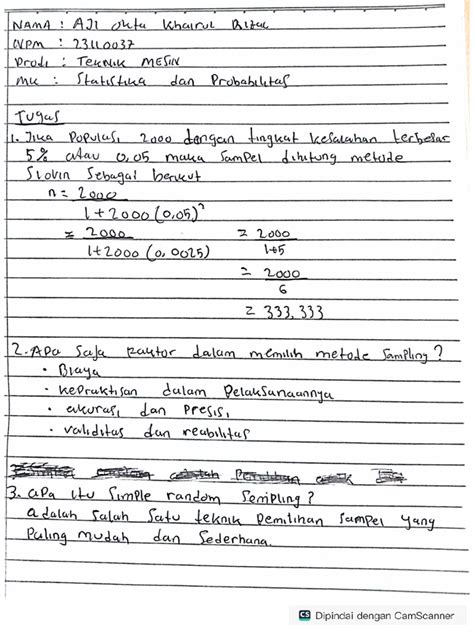 NAMA : AJI Okta Khairul Rizal
NPM : 23110037
Prodi : TEKNIK MESIN
MK : Statistika dan Probabilitas
Tugas
1. Jika Populasi 2000 dengan tingkat kesalahan terbesar
5% atau 0,05 maka sampel dihitung metode
Slovin sebagai berikut
n = 2000
1 + 2000 (0,05)²
= 2000 = 2000
1 + 2000 (0,0025) 1+5
= 2000
6
= 333,333
2. Apa saja Faktor dalam memilih metode sampling ?
• Biaya
• kepraktisan dalam Pelaksanaannya
• akurasi dan Presisi
• validitas dan reabilitas
3. apa itu Simple random Sempling ?
adalah salah satu teknik Pemilihan Sampel yang
Paling mudah dan Sederhana.
CS Dipindai dengan CamScanner